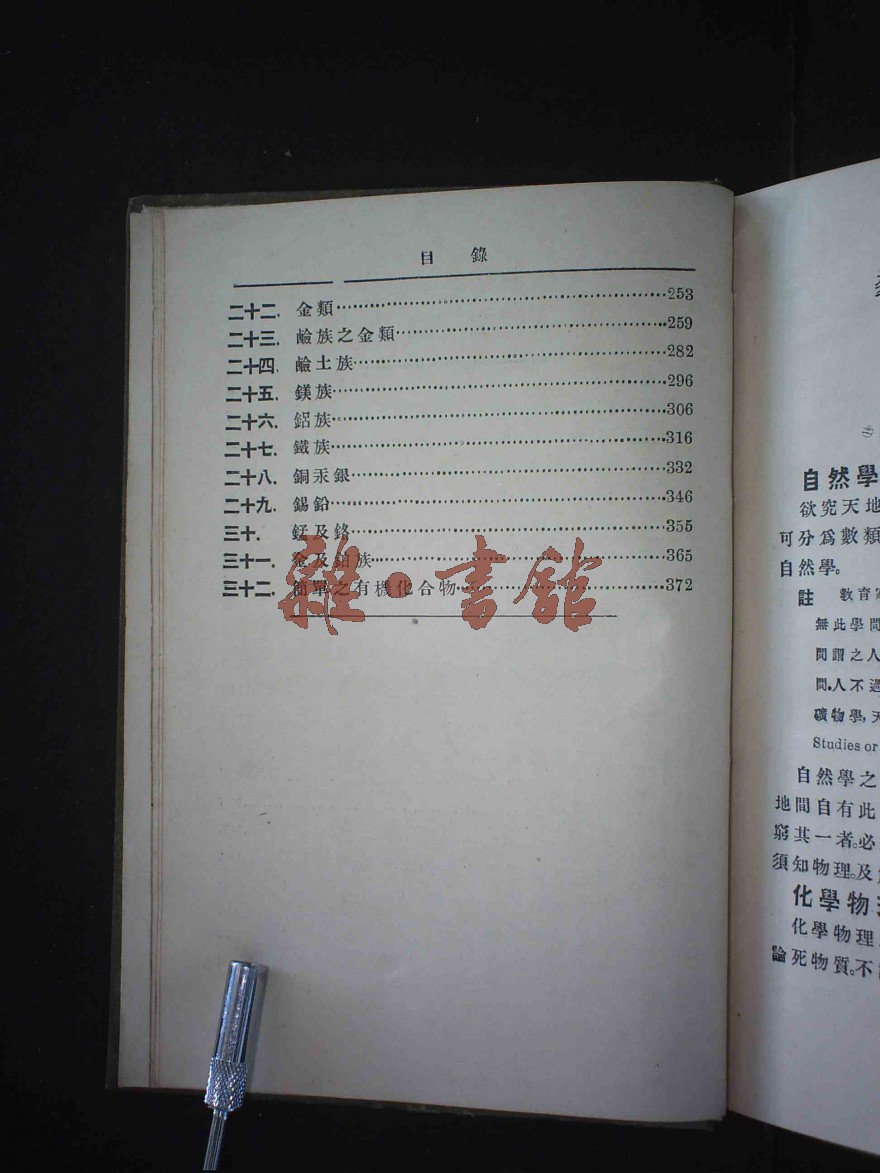 目錄
二十二. 金類 253
二十三. 鹼族之金類 259
二十四. 鹼土族 282
二十五. 鎂族 296
二十六. 鋁族 306
二十七. 鐵族 316
二十八. 銅汞銀 332
二十九. 錫鉛 346
三十. 錳及鉻 355
三十一. 金及鉑族 365
三十二. 簡單之有機化合物 372
雜·書館
自然學
欲究天地
可分爲數類
自然學。
註 教育家
無此學問
問謂之人
問.人不過
礦物學,天
Studies or
自然學之
地間自有此
窮其一者。必
須知物理。及
化學物理
化學物理
論死物質。不